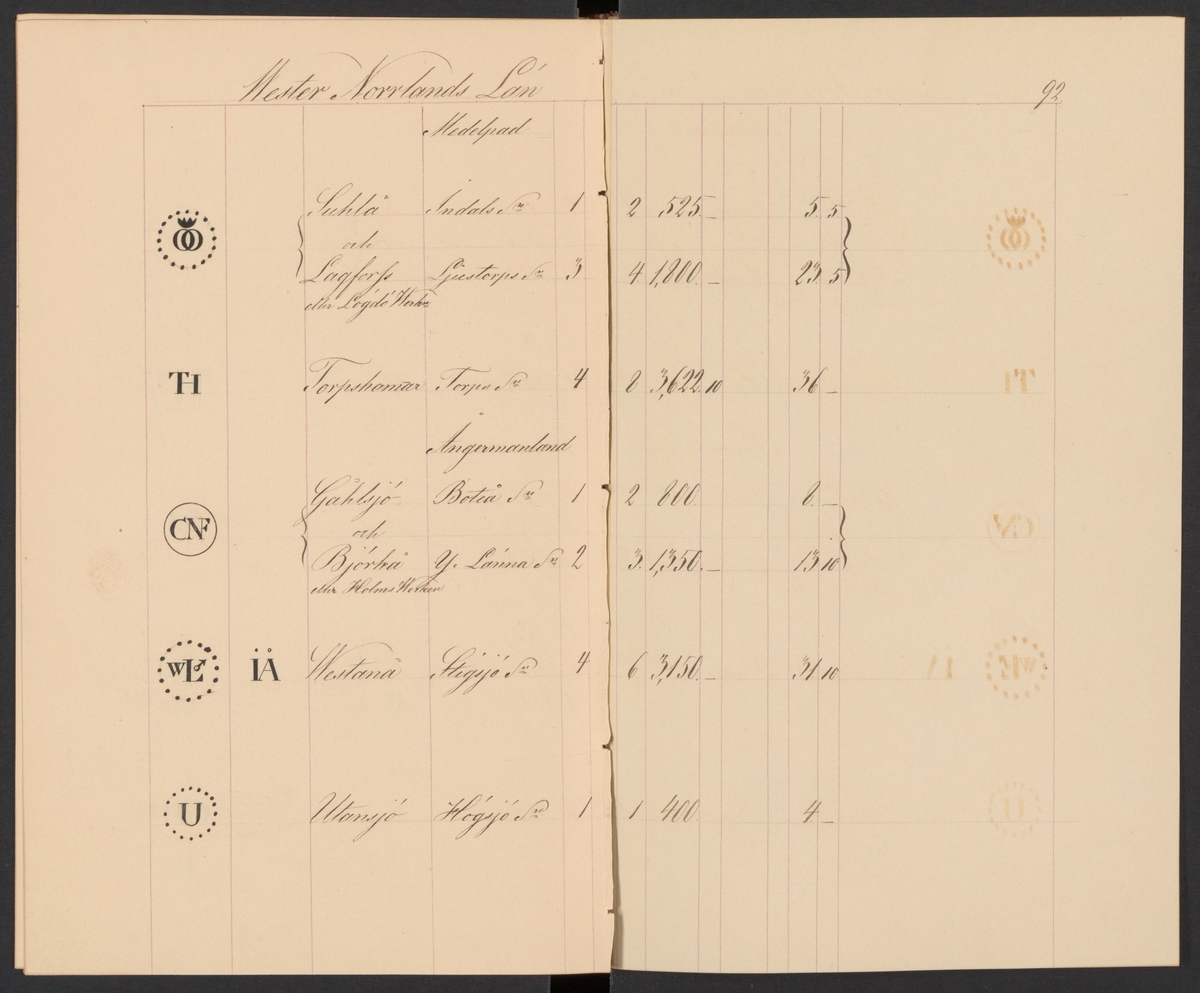 Wester Norrlands Län
92
Medelpad
Suhlå Indals Sn 1 2 525 – 5 5
och
Lagforss Ljustorps Sn 3 4 1,800 – 23 5
eller Lögdö Werken
TH Torpshammar Torps Sn 4 8 3,622 10 36 –
Ångermanland
Gåhlsjö Boteå Sn 1 2 800 8 –
och
CNF Björkå Y. Länna Sn 2 3 1,350 – 13 10
eller Holms Werken
WL IÅ Westanå Stigsjö Sn 4 6 3,150 – 31 10
U Utansjö Högsjö Sn 1 1 400 4 –